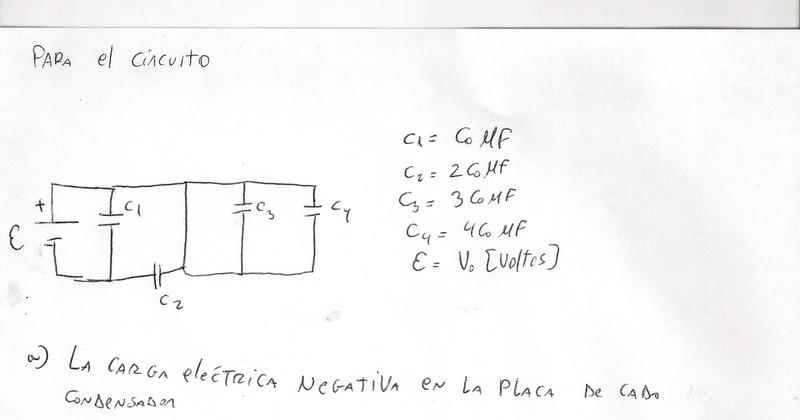 PARA el CIRCUITO
C1 = C0 μF
C2 = 2C0 μF
C3 = 3C0 μF
C4 = 4C0 μF
ε = V0 [Voltes]
+
C1
C3
C4
ε
C2
a) LA CARGA eleCTRICA NEGATIVA EN LA PLACA DE CADA
CONDENSADOR